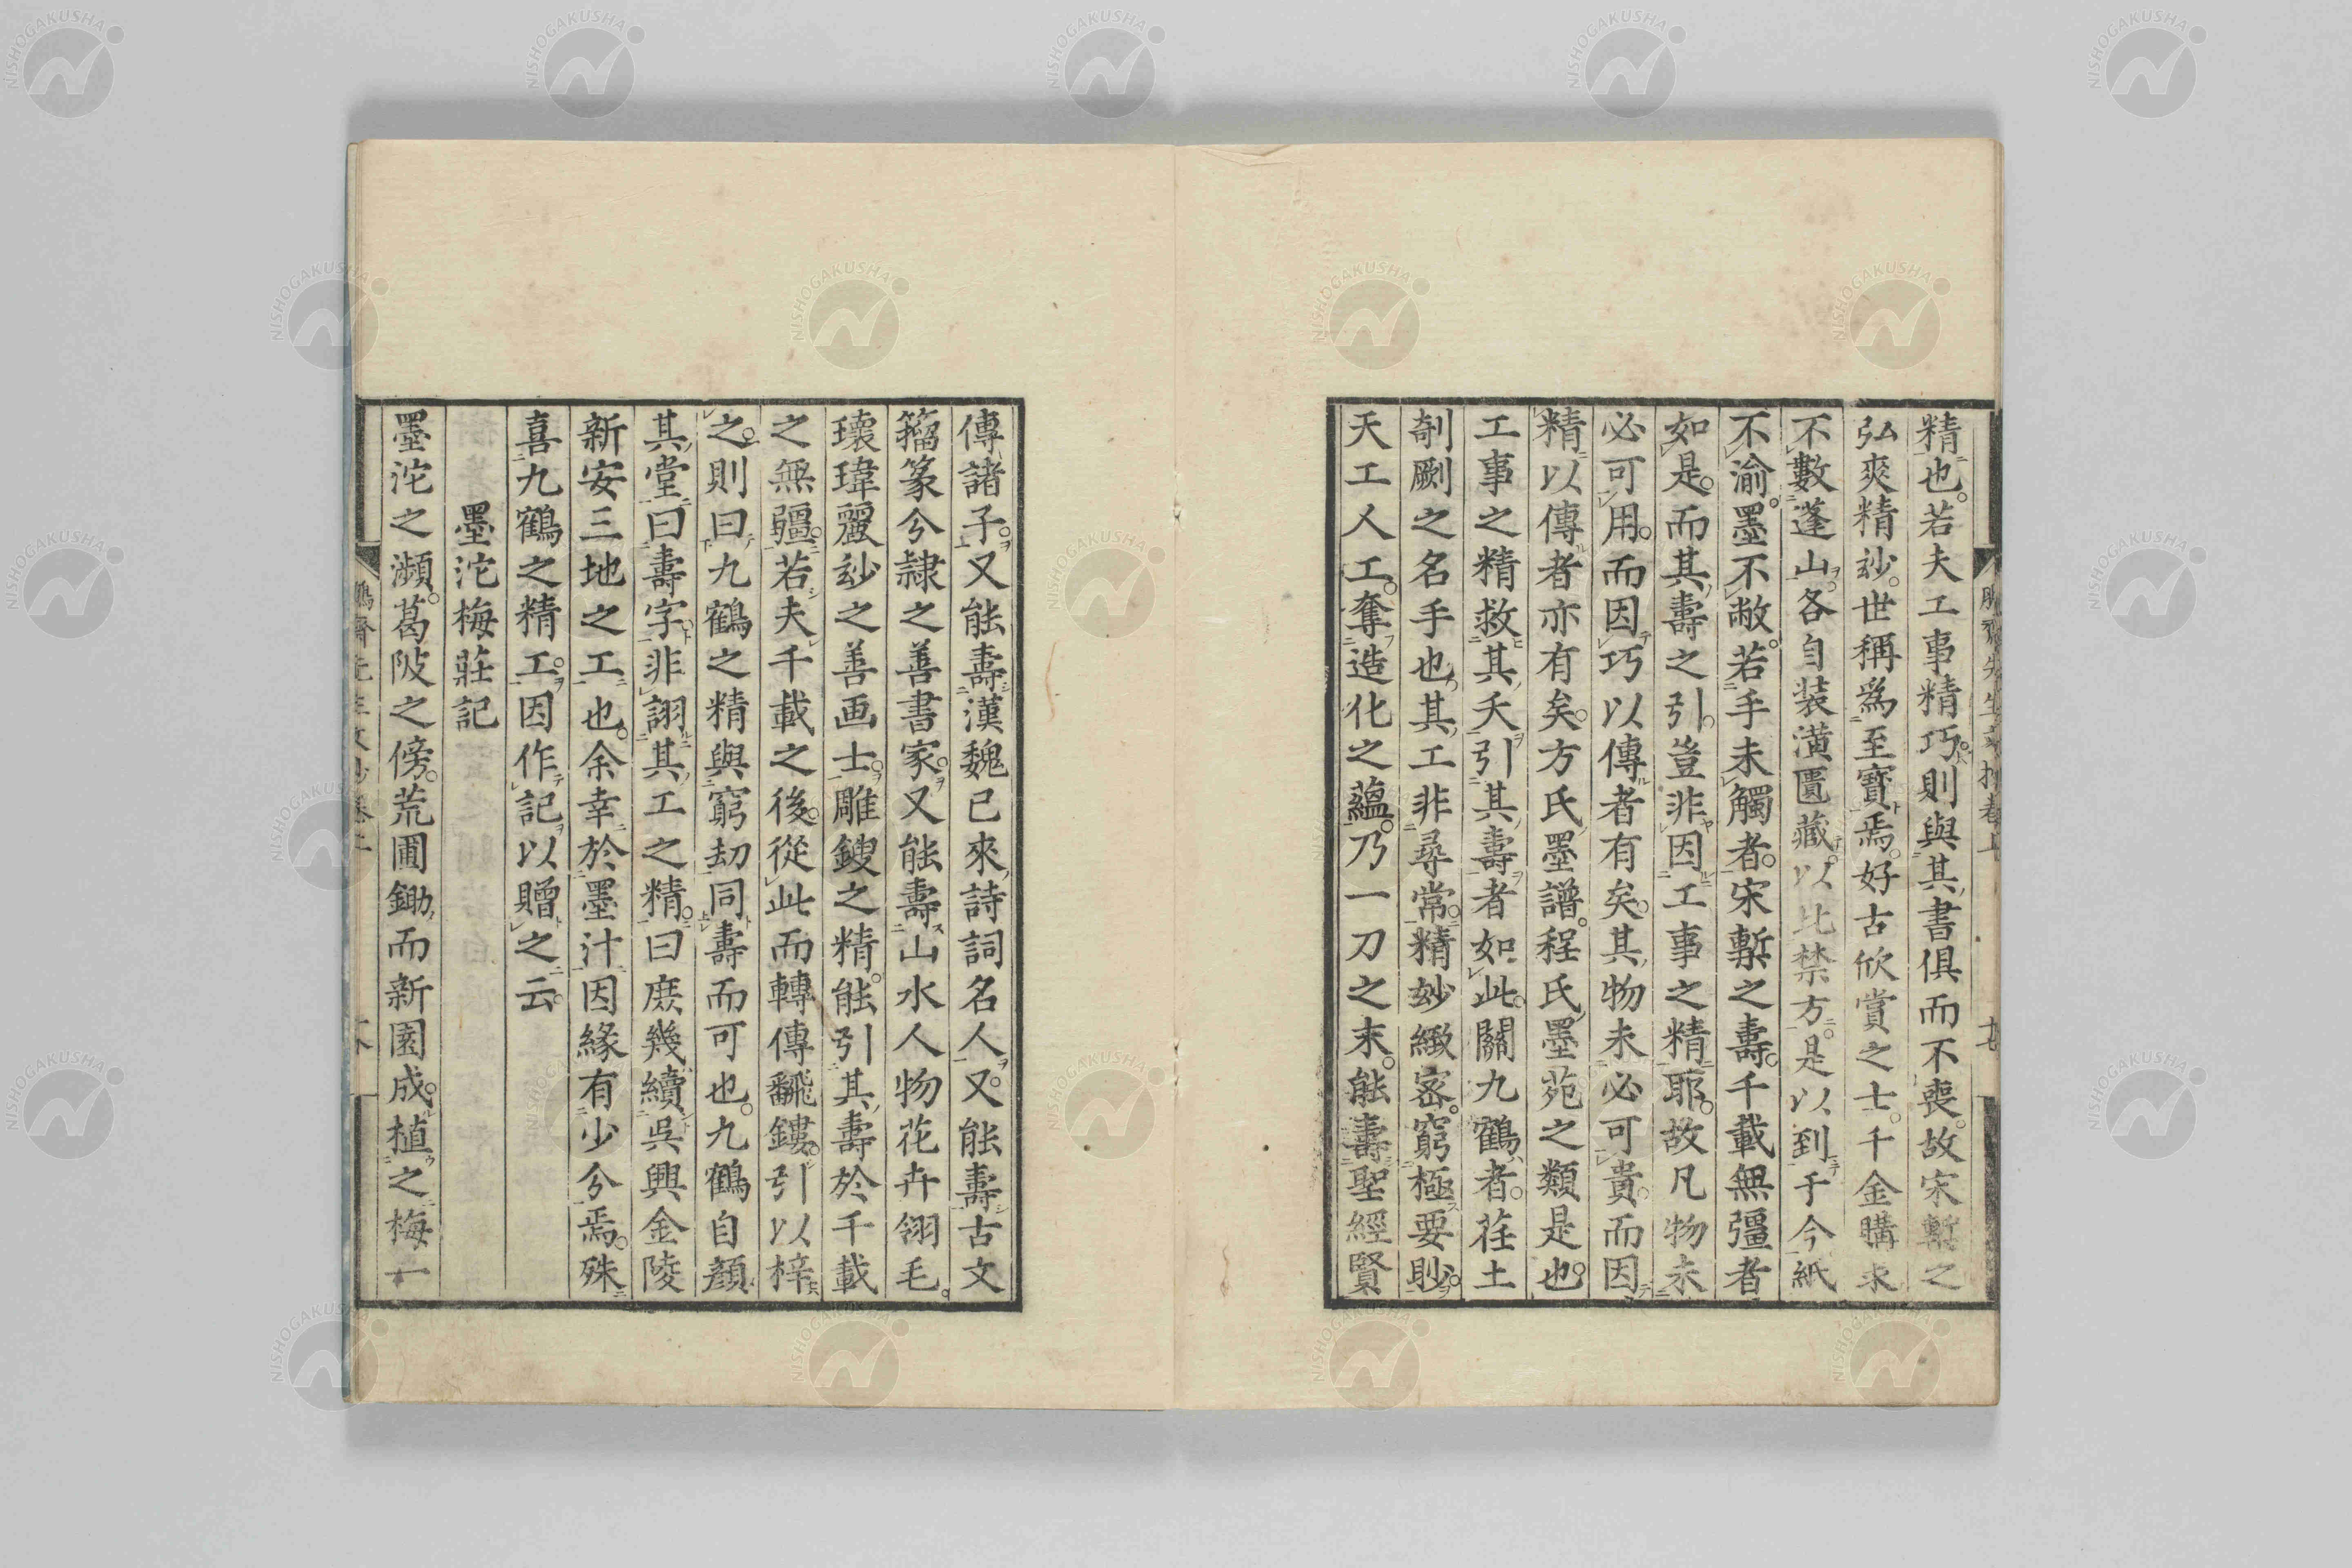 精也。若夫工事精巧。則與其書俱而不喪。故宋槧之
弘爽精玅。世稱爲至寶焉。好古欣賞之士。千金購求
不數蓬山。各自装潢匱藏。以比禁方。是以到于今紙
不渝。墨不敝。若手未觸者。宋槧之壽。千載無彊者
如是。而其壽之引。豈非因工事之精耶。故凡物未
必可用。而因巧以傳者有矣。其物未必可貴。而因
精以傳者亦有矣。方氏墨譜。程氏墨苑之類是也。
工事之精救其夭引其壽者如此。關九鶴者。荏土
剞劂之名手也。其工非尋常。精妙緻密。窮極要眇。
天工人工。奪造化之蘊。乃一刀之末。能壽聖經賢
傳諸子。又能壽漢魏已來詩詞名人。又能壽古文
籀篆兮隷之善書家。又能壽山水人物花卉翎毛。
瓌瑋麗玅之善画士。雕鎪之精。能引其壽於千載
之無疆。若夫千載之後。從此而轉傳飜鏤。引以梓
之。則曰九鶴之精與窮劫同壽而可也。九鶴自顏
其堂曰壽字。非詡其工之精。曰庶幾續吳興金陵
新安三地之工也。余幸於墨汁因緣有少兮焉。殊
喜九鶴之精工。因作記以贈之云。
墨沱梅莊記
墨沱之瀕。葛陂之傍。荒圃鋤而新園成。植之梅一
NISHOGAKUSHA